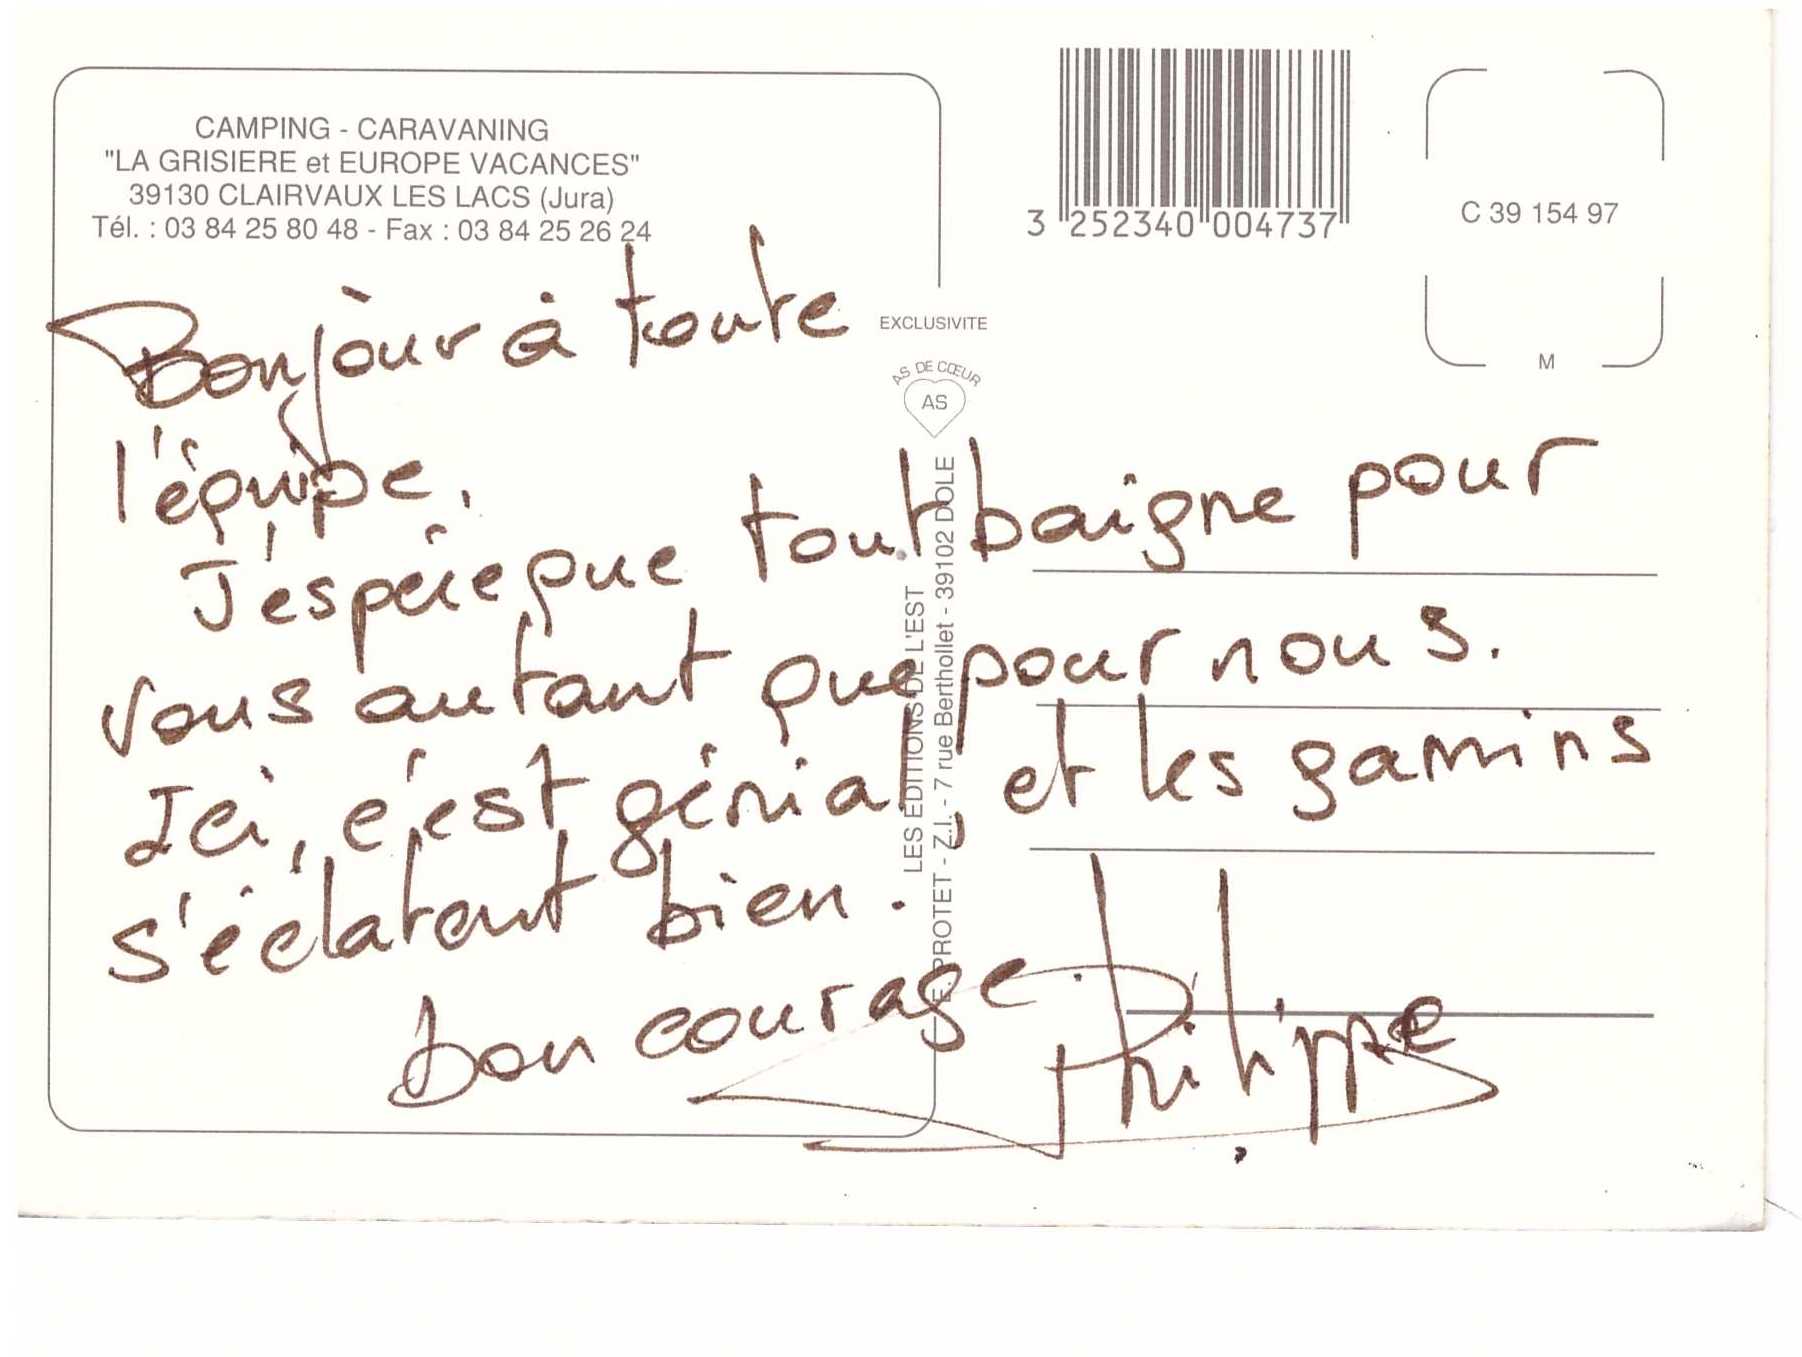 CAMPING - CARAVANING
"LA GRISIERE et EUROPE VACANCES"
39130 CLAIRVAUX LES LACS (Jura)
Tél. : 03 84 25 80 48 - Fax : 03 84 25 26 24
3 252340 004737
C 39 154 97
M
EXCLUSIVITE
AS DE CŒUR
AS
LES EDITIONS DE L'EST
E. PROTET - Z.I. - 7 rue Berthollet - 39102 DOLE
Bonjour à toute
l'équipe,
J'espère que tout baigne pour
vous autant que pour nous.
Ici, c'est génial, et les gamins
s'éclatent bien.
bon courage.
Philippe